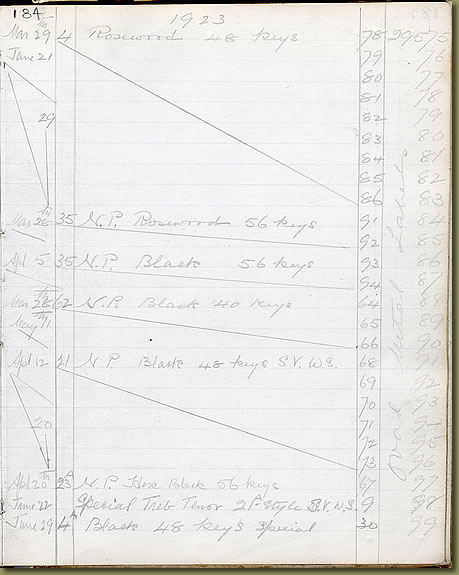 184
1923
Mar 29th 4 Rosewood 48 keys 78 29675
June 21 79 76
80 77
81 78
29 82 79
83 80
84 81
85 82
86 83
Mar 28th 35 N.P. Rosewood 56 keys 91 84
92 85
Apl 5 35 N.P. Black 56 keys 93 86
94 87
Mar 28th 62 N.P. Black 40 keys 64 88
May 11th 65 89
66 90
Apl 12 21 N.P. Black 48 keys S.V. W.S. 68 91
69 92
70 93
71 94
20 72 95
73 96
Apl 20th 23A N.P. Hex Black 56 keys 67 97
June 22 Special Treb Tenor 21A Style S.V. W.S. 9 98
June 29 4A Black 48 keys Special 30 99
Oval Metal Labels